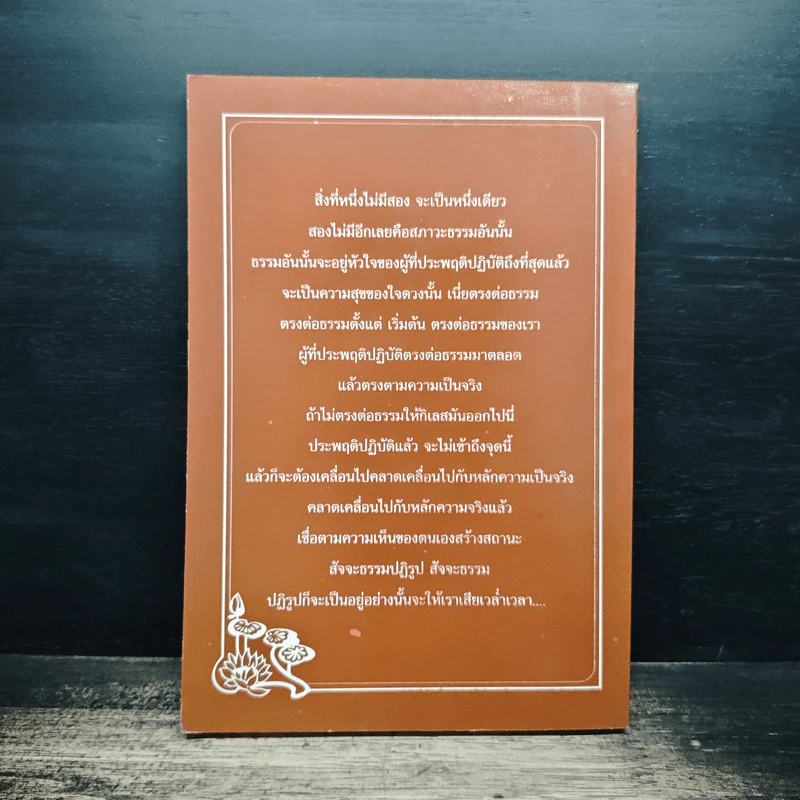 สิ่งที่หนึ่งไม่มีสอง จะเป็นหนึ่งเดียว
สองไม่มีอีกเลยคือสภาวะธรรมอันนั้น
ธรรมอันนั้นจะอยู่หัวใจของผู้ที่ประพฤติปฏิบัติถึงที่สุดแล้ว
จะเป็นความสุขของใจดวงนั้น เนี่ยตรงต่อธรรม
ตรงต่อธรรมตั้งแต่ เริ่มต้น ตรงต่อธรรมของเรา
ผู้ที่ประพฤติปฏิบัติตรงต่อธรรมมาตลอด
แล้วตรงตามความเป็นจริง
ถ้าไม่ตรงต่อธรรมให้กิเลสมันออกไปนี่
ประพฤติปฏิบัติแล้ว จะไม่เข้าถึงจุดนี้
แล้วก็จะต้องเคลื่อนไปคลาดเคลื่อนไปกับหลักความเป็นจริง
คลาดเคลื่อนไปกับหลักความจริงแล้ว
เชื่อตามความเห็นของตนเองสร้างสถานะ
สัจจะธรรมปฏิรูป สัจจะธรรม
ปฏิรูปก็จะเป็นอยู่อย่างนั้นจะให้เราเสียเวล่ำเวลา....